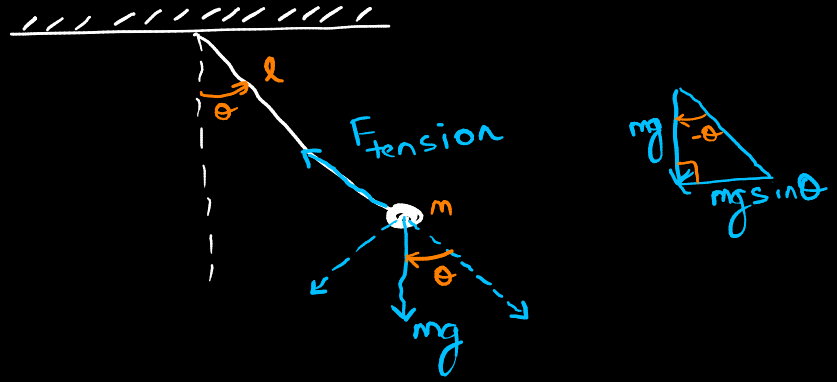 l
θ
F tension
m
θ
mg
mg
-θ
mg sinθ